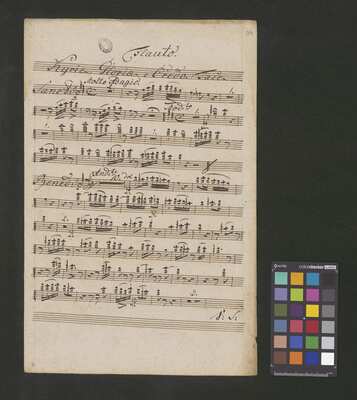 Flauto.
Kyrie Gloria e Credo Tacet
Molto Adagio
Sanctus
Andte
Benedictus
V: S: